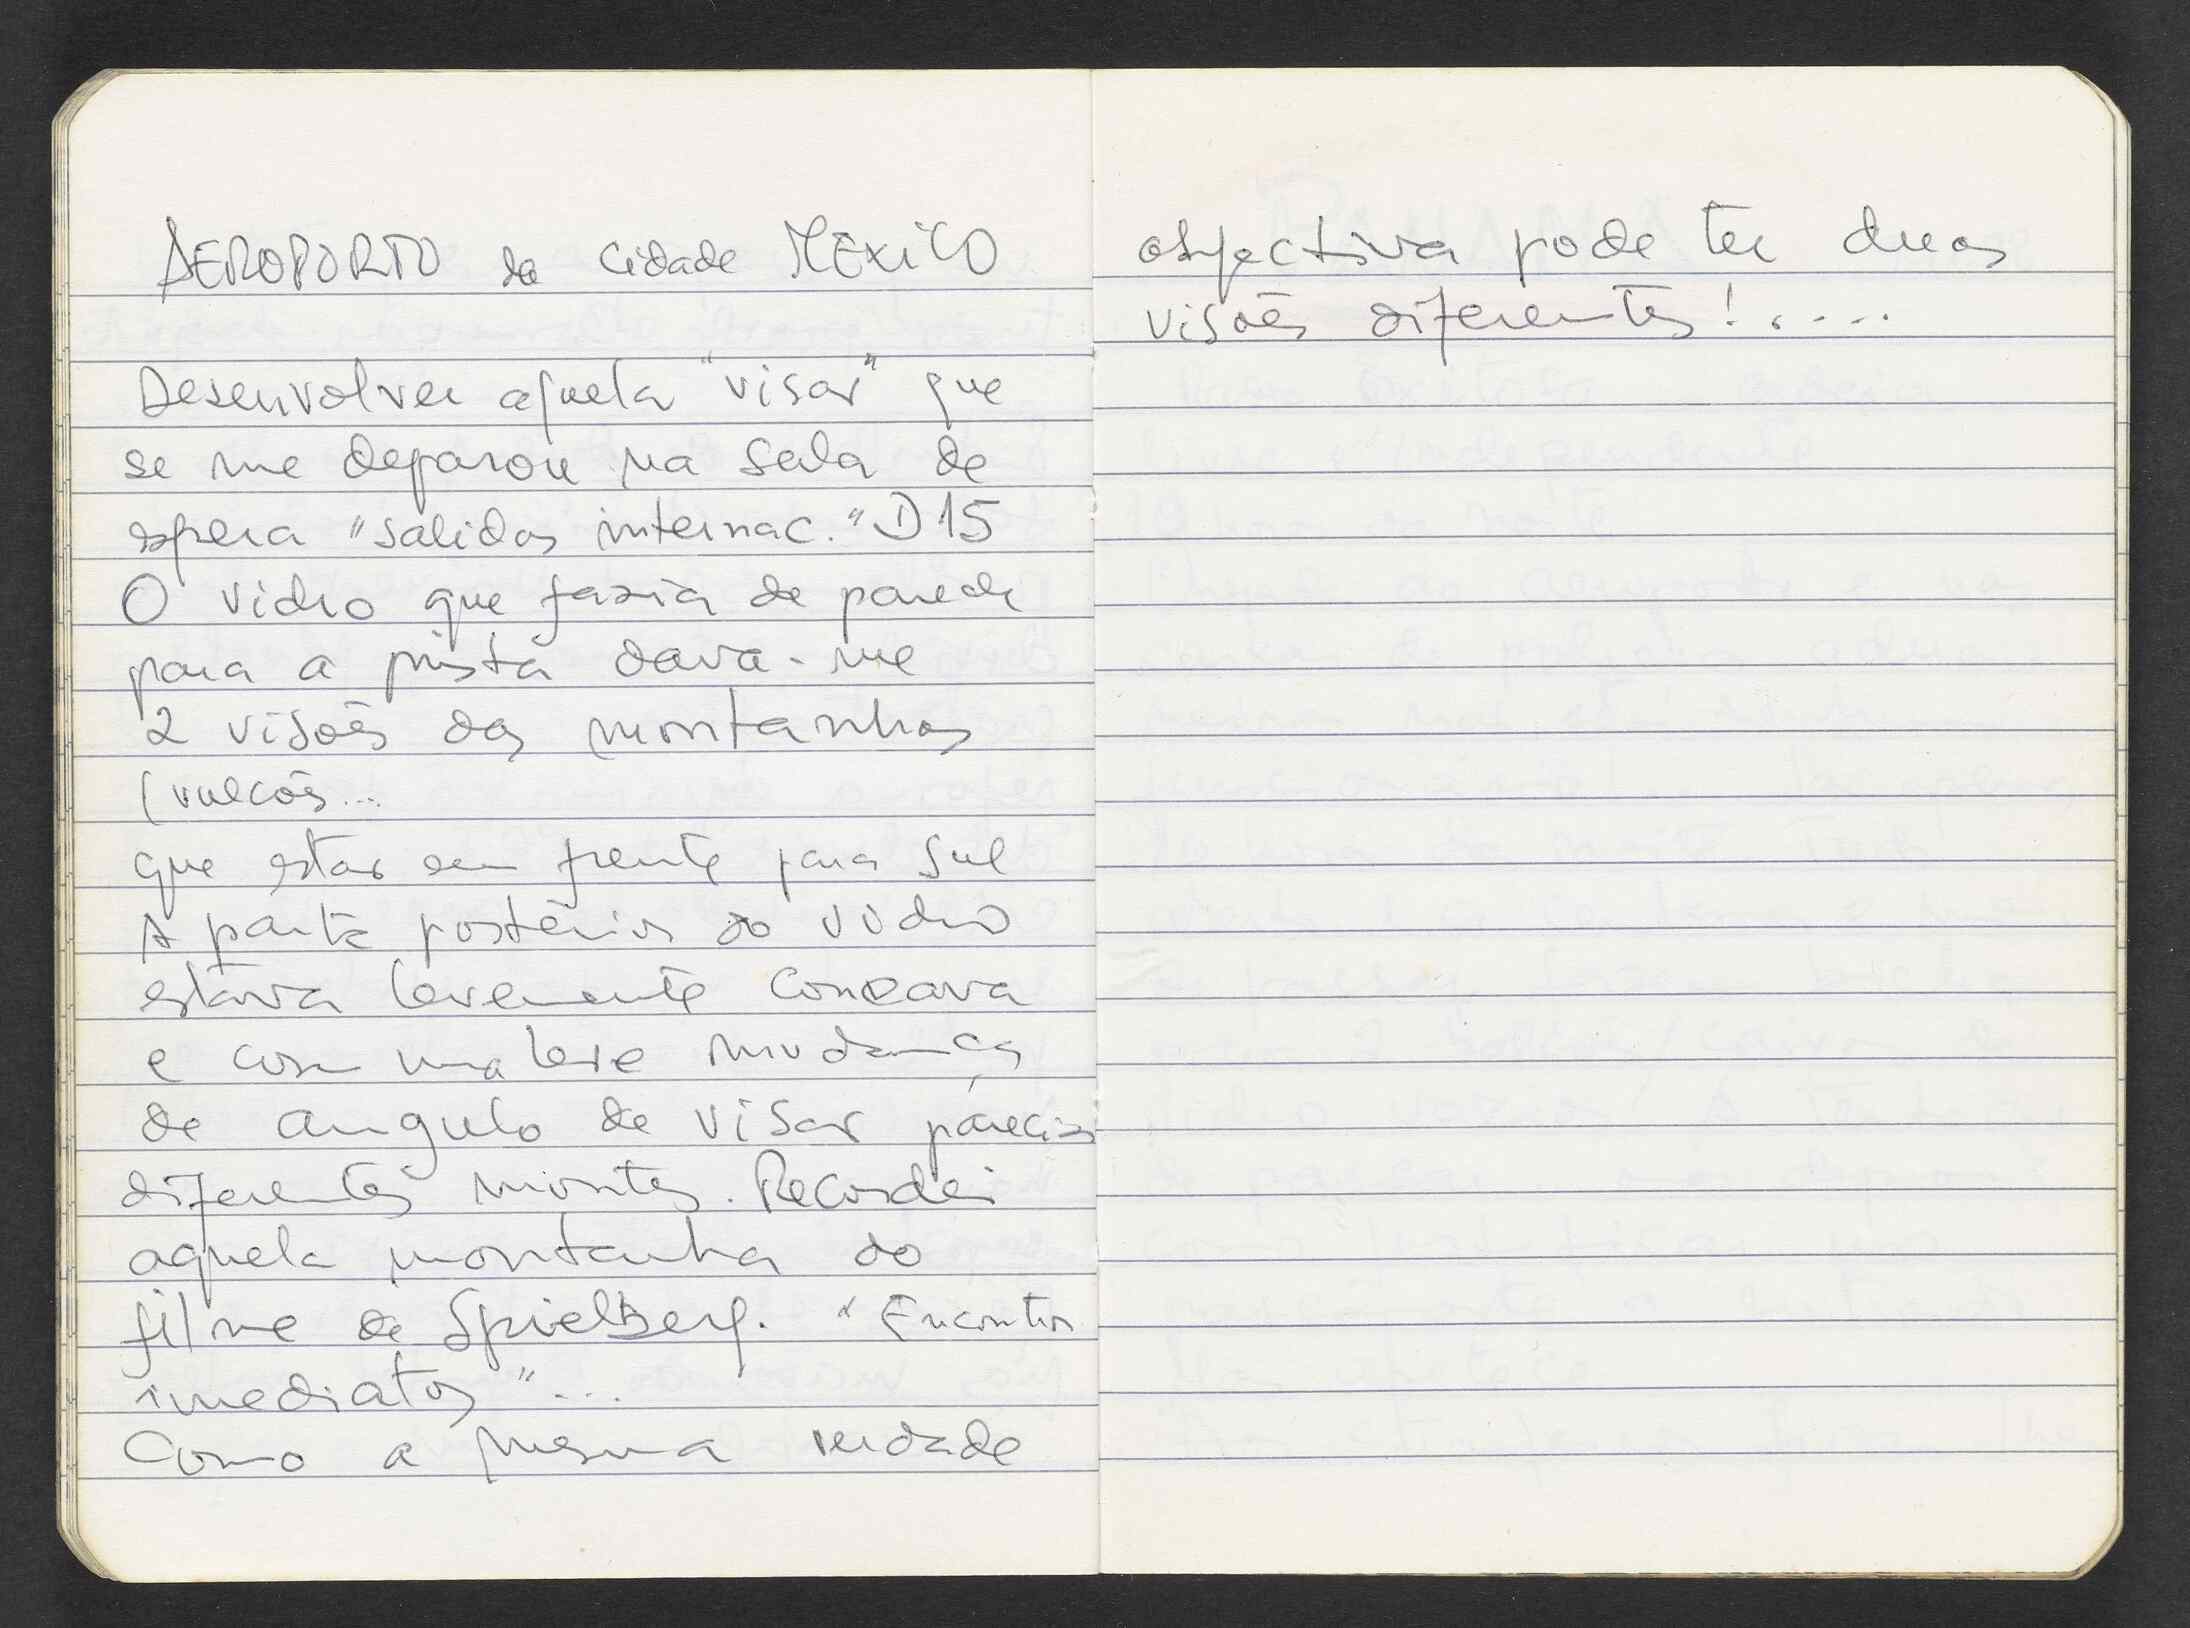 AEROPORTO da Cidade MEXICO
Desenvolver aquela "visão" que
se me deparou na sala de
espera "salidas internac." D15
O vidro que fazia de parede
para a pista dava-me
2 visões das montanhas
(vulcões...
que estão em frente para sul
A parte posterior do vidro
estava levemente concava
e com uma leve mudança
de angulo de visão pareciam
diferentes montes. Recordei
aquela montanha do
filme de Spielberg. "Encontros
imediatos"...
Como a mesma verdade
objectiva pode ter duas
visões diferentes!....